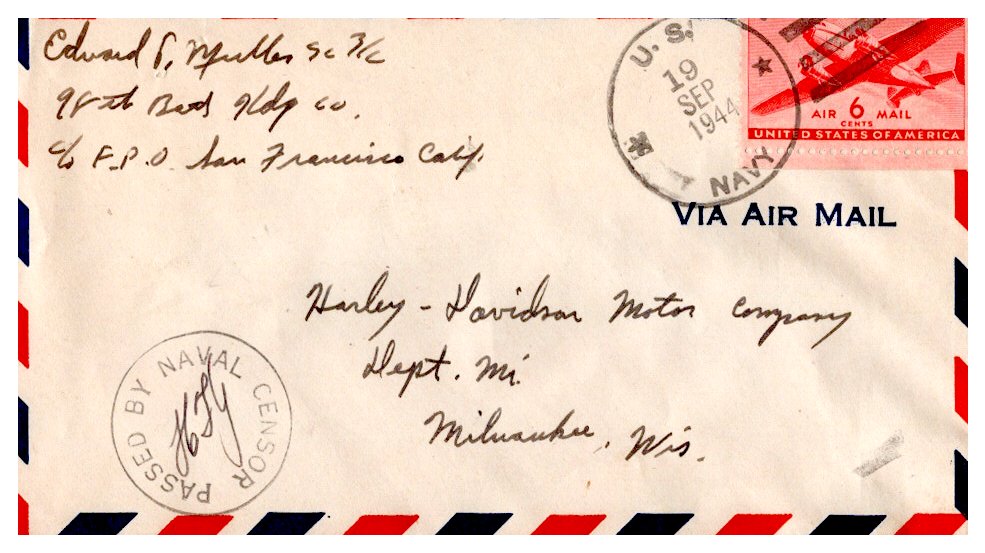 Edward P. Mueller Sc 3/c
98th Batt Hdq Co.
c/o F.P.O. San Francisco Calif.
U. S.
NAVY
19
SEP
1944
AIR 6 MAIL
CENTS
UNITED STATES OF AMERICA
VIA AIR MAIL
Harley-Davidson Motor Company
Dept. Mi.
Milwaukee, Wis.
PASSED BY NAVAL CENSOR